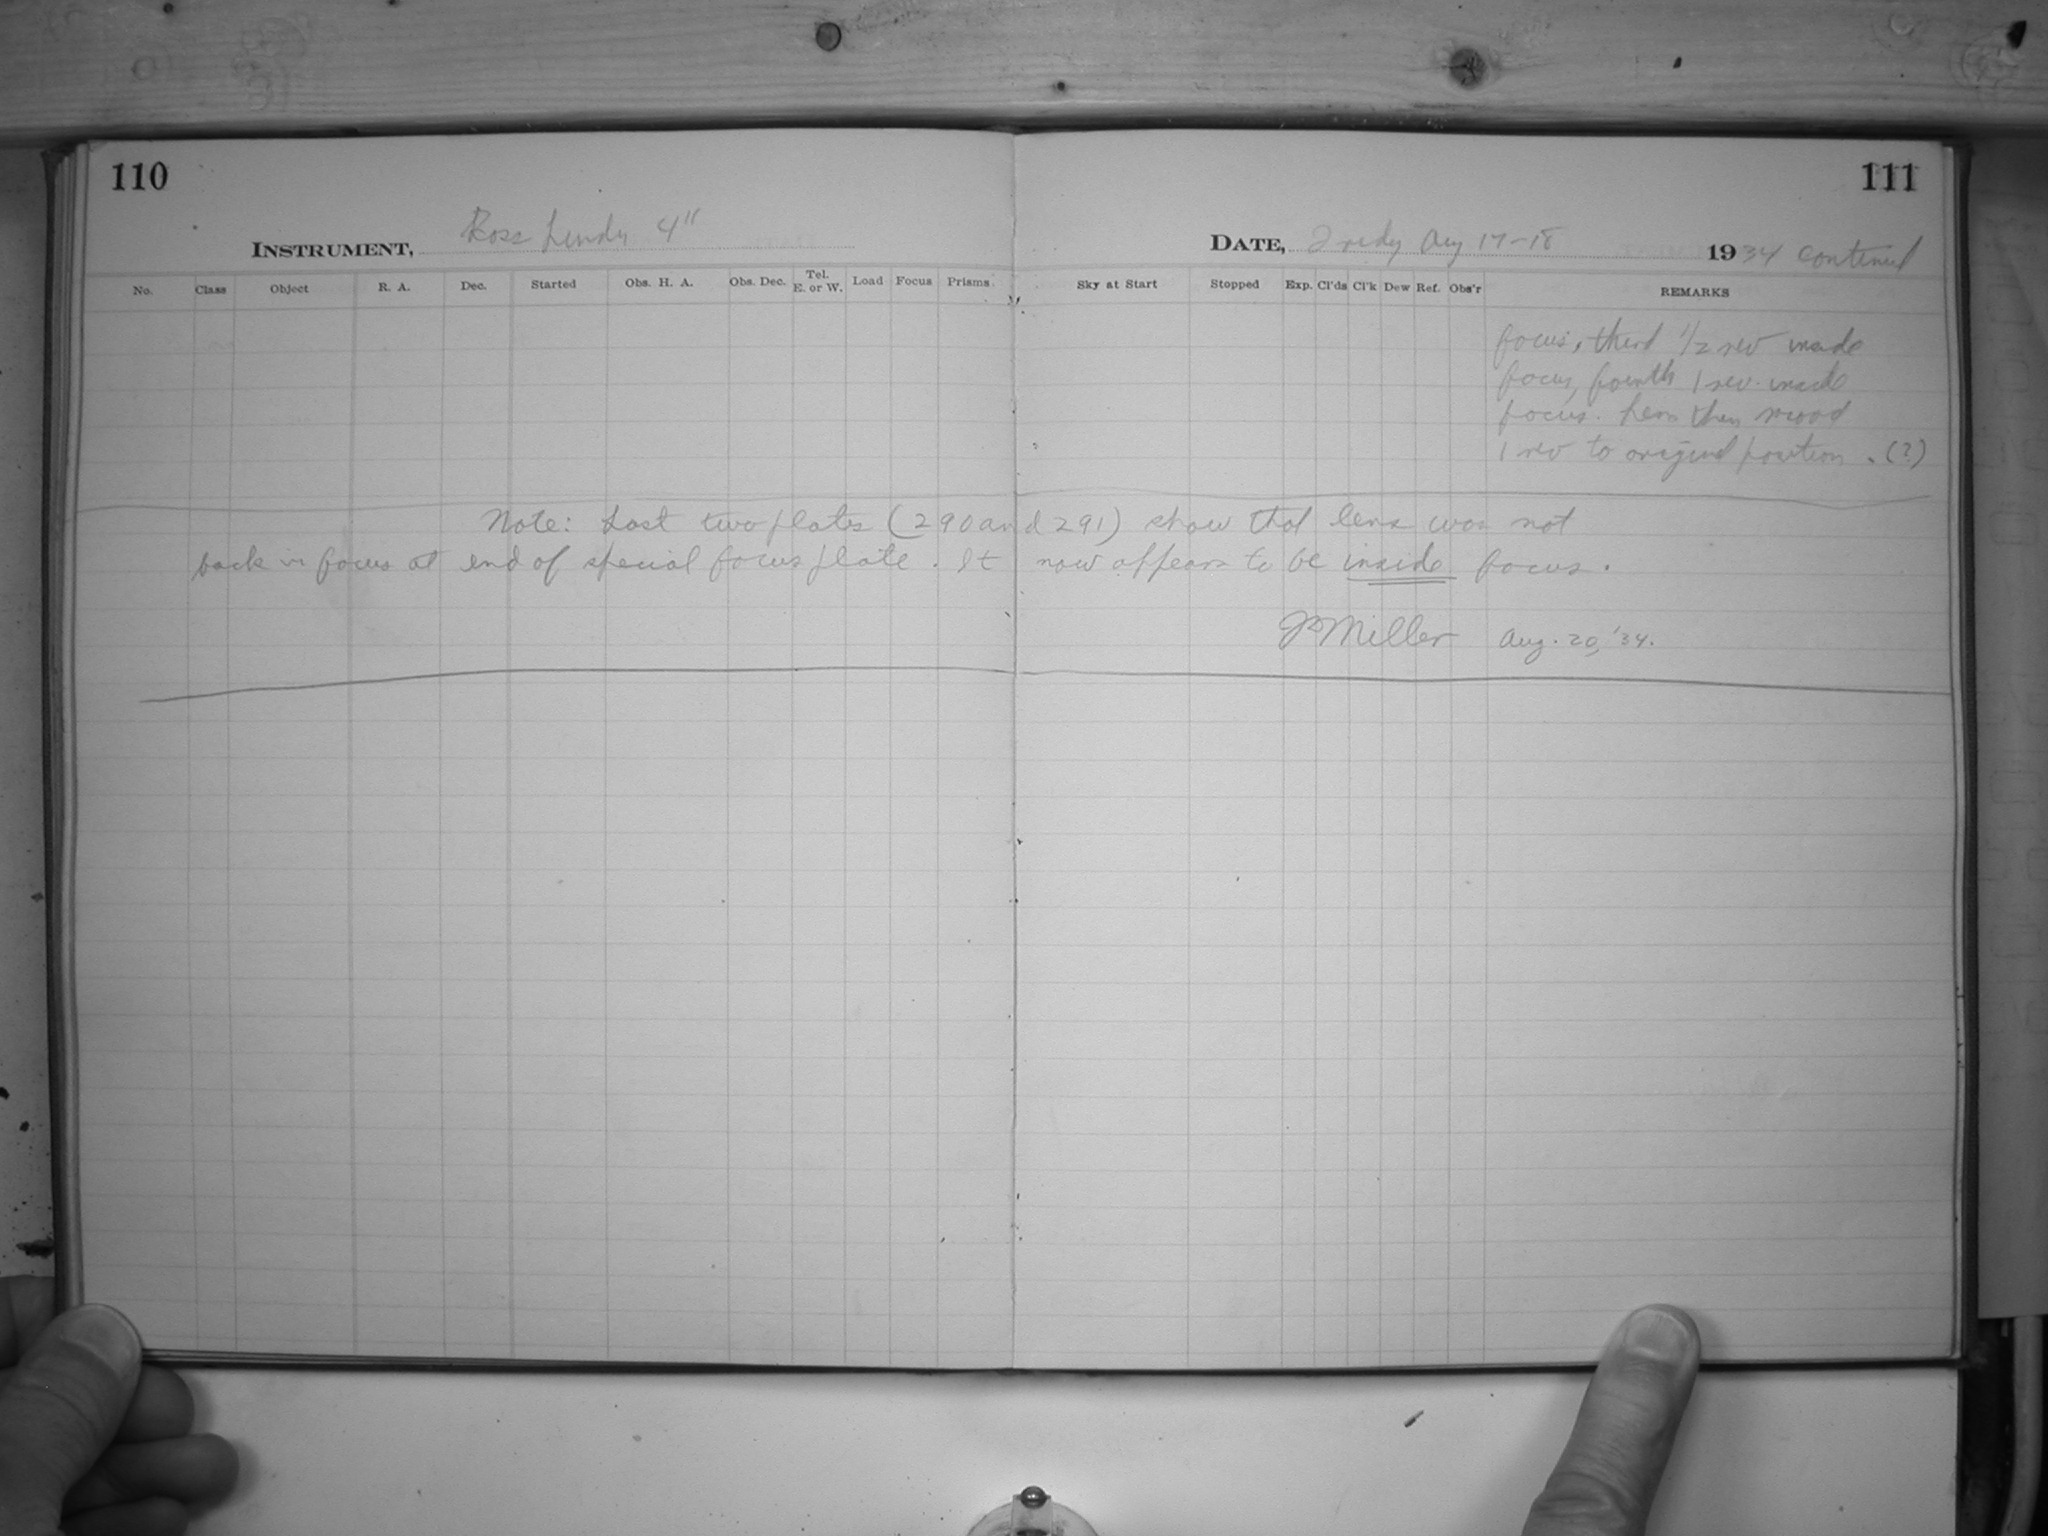 110
111
INSTRUMENT, Ross Lundin 4"
DATE, Friday Aug 17-18 1934 continued
No. Class Object R. A. Dec. Started Obs. H. A. Obs. Dec. Tel. E. or W. Load Focus Prisms.
Sky at Start Stopped Exp. Cl'ds Cl'k Dew Ref. Obs'r REMARKS
focus, third 1/2 rev inside
focus, fourth 1 rev. inside
focus. Lens then moved
1 rev to original position. (?)
Note: Last two plates (290 and 291) show that lens was not
back in focus at end of special focus plate. It now appears to be inside focus.
Miller Aug. 20, '34.